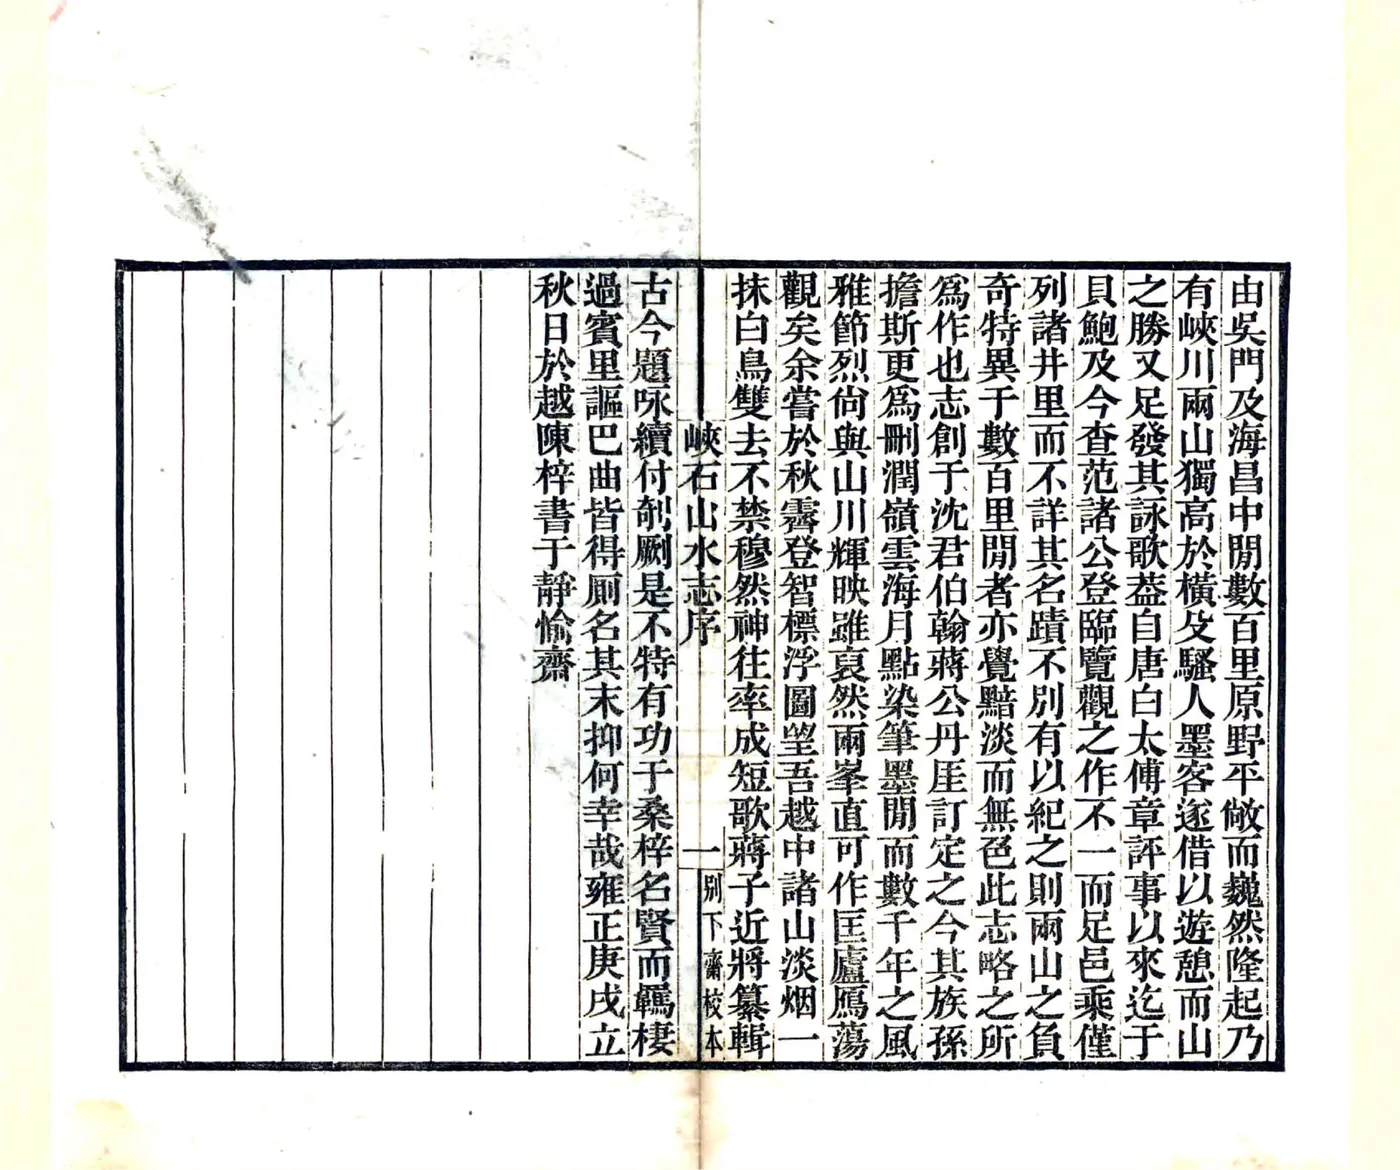 由吳門及海昌中閒數百里原野平敞而巍然隆起乃
有峽川兩山獨高於橫殳騷人墨客遂借以遊憩而山
之勝又足發其詠歌葢自唐白太傅章評事以來迄于
貝鮑及今查范諸公登臨覽觀之作不一而足邑乘僅
列諸井里而不詳其名蹟不別有以紀之則兩山之負
奇特異于數百里閒者亦覺黯淡而無色此志略之所
爲作也志創于沈君伯翰蔣公丹厓訂定之今其族孫
擔斯更爲刪潤嶺雲海月點染筆墨閒而數千年之風
雅節烈尙與山川輝映雖裒然兩峯直可作匡廬鴈蕩
觀矣余嘗於秋霽登智標浮圖望吾越中諸山淡烟一
抹白鳥雙去不禁穆然神往率成短歌蔣子近將纂輯
峽石山水志序
一
別下齋校本
古今題咏續付剞劂是不特有功于桑梓名賢而羈棲
過賓里謳巴曲皆得厠名其末抑何幸哉雍正庚戌立
秋日於越陳梓書于靜愉齋